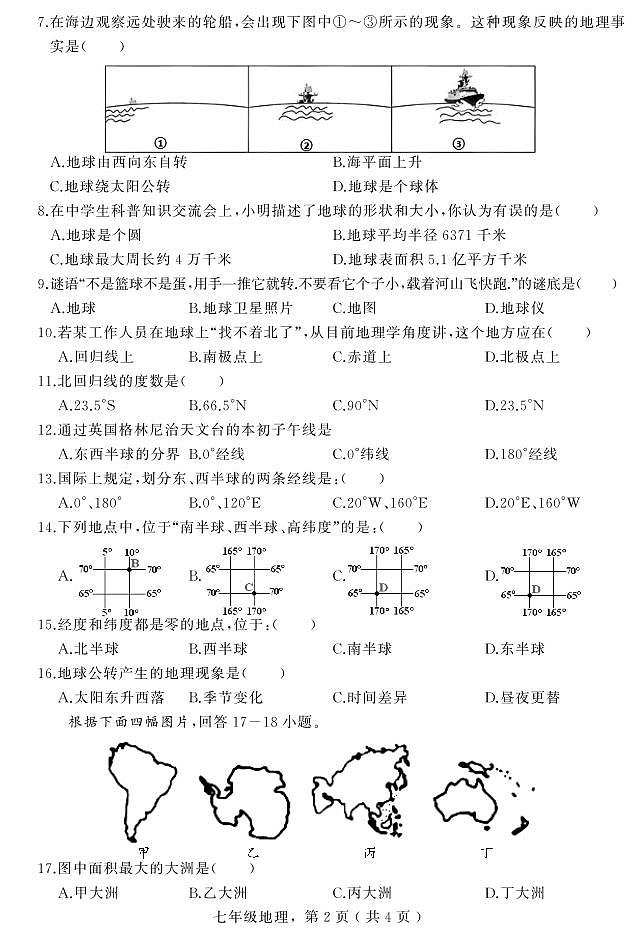 7.在海边观察远处驶来的轮船,会出现下图中①～③所示的现象。这种现象反映的地理事
实是(　　)
① ② ③
A.地球由西向东自转 B.海平面上升
C.地球绕太阳公转 D.地球是个球体
8.在中学生科普知识交流会上,小明描述了地球的形状和大小,你认为有误的是(　　)
A.地球是个圆 B.地球平均半径 6371 千米
C.地球最大周长约 4 万千米 D.地球表面积 5.1 亿平方千米
9.谜语“不是篮球不是蛋,用手一推它就转.不要看它个子小,载着河山飞快跑.”的谜底是(　　)
A.地球 B.地球卫星照片 C.地图 D.地球仪
10.若某工作人员在地球上“找不着北了”,从目前地理学角度讲,这个地方应在(　　)
A.回归线上 B.南极点上 C.赤道上 D.北极点上
11.北回归线的度数是(　　)
A.23.5°S B.66.5°N C.90°N D.23.5°N
12.通过英国格林尼治天文台的本初子午线是
A.东西半球的分界 B.0°经线 C.0°纬线 D.180°经线
13.国际上规定,划分东、西半球的两条经线是:(　　)
A.0°、180° B.0°、120°E C.20°W、160°E D.20°E、160°W
14.下列地点中,位于“南半球、西半球、高纬度”的是:(　　)
5° 10° 165° 170° 170° 165° 170° 165°
A. 70° B 70° B. 65° 65° C. 70° 70° D. 70° 70°
65° 65° 70° C 70° 65° D 65° 65° D 65°
5° 10° 165° 170° 170° 165° 170° 165°
15.经度和纬度都是零的地点,位于:(　　)
A.北半球 B.西半球 C.南半球 D.东半球
16.地球公转产生的地理现象是(　　)
A.太阳东升西落 B.季节变化 C.时间差异 D.昼夜更替
根据下面四幅图片,回答 17－18 小题。
甲 乙 丙 丁
17.图中面积最大的大洲是(　　)
A.甲大洲 B.乙大洲 C.丙大洲 D.丁大洲
七年级地理，第 2 页 ( 共 4 页 )